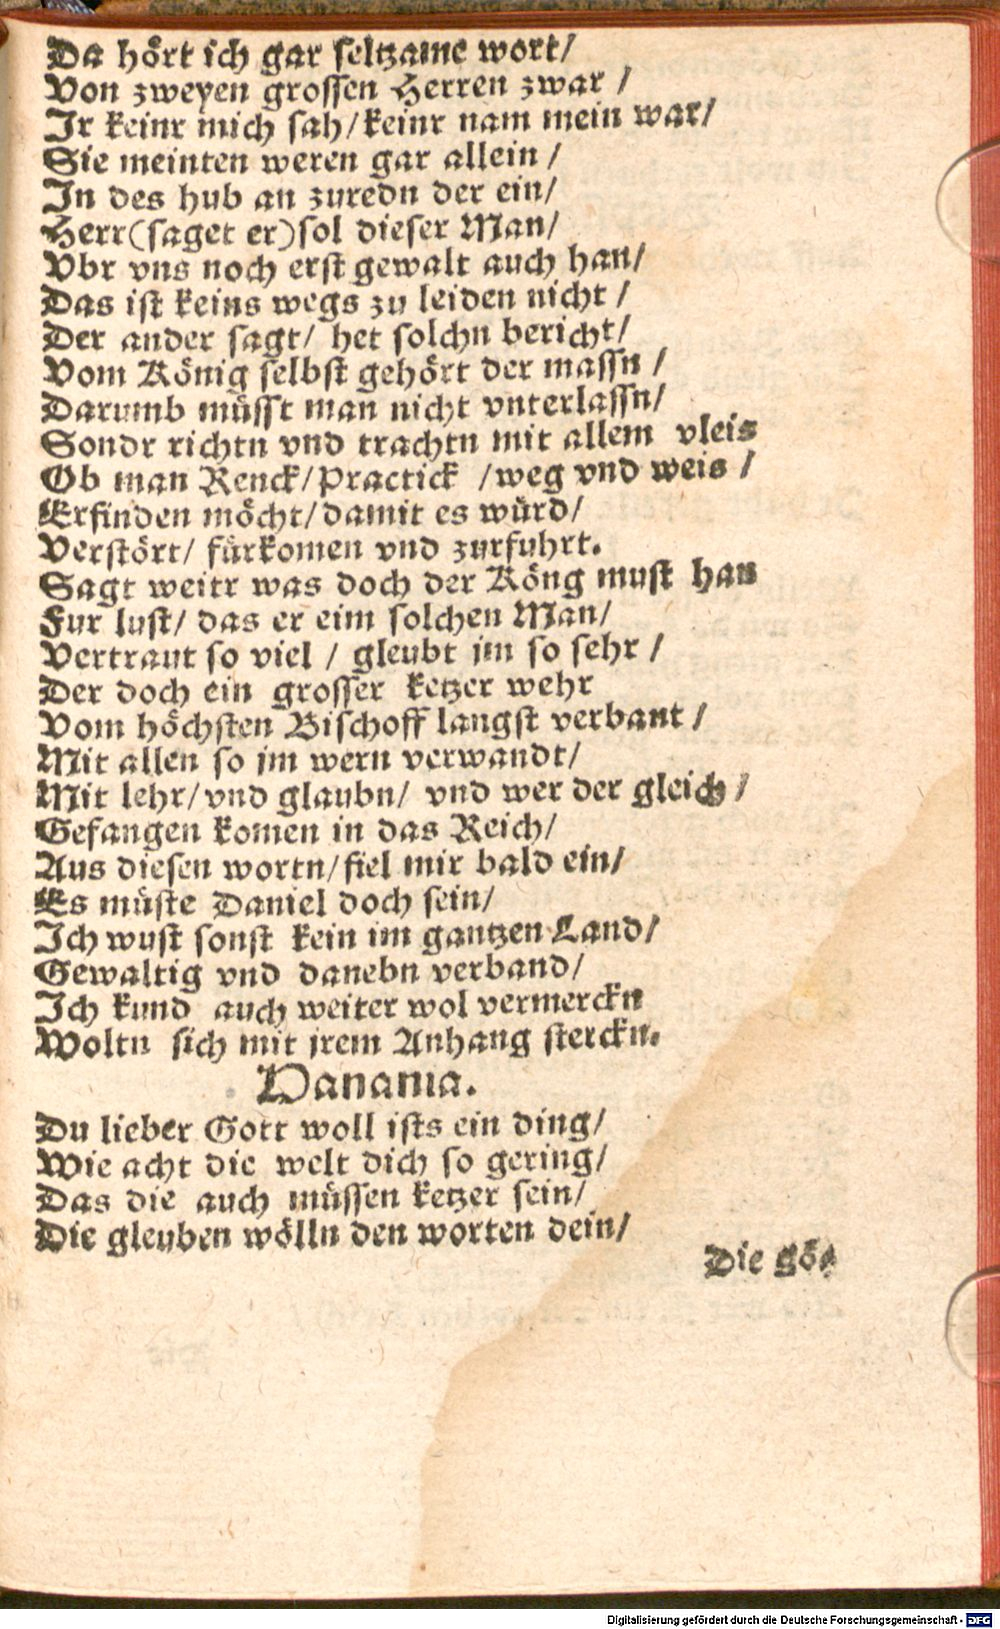 Da hört ich gar seltzame wort/
Von zweyen grossen Herren zwar /
Ir keinr mich sah/keinr nam mein war/
Sie meinten weren gar allein /
In des hub an zuredn der ein/
Herr(saget er)sol dieser Man/
Vbr vns noch erst gewalt auch han/
Das ist keins wegs zu leiden nicht /
Der ander sagt/ het solchn bericht/
Vom König selbst gehört der massn /
Darumb müsst man nicht vnterlassn/
Sondr richtn vnd trachtn mit allem vleis
Ob man Renck/Practick /weg vnd weis /
Erfinden möcht/damit es würd/
Verstört/ fürkomen vnd zurfuhrt.
Sagt weitr was doch der Köng must han
Fur lust/ das er eim solchen Man/
Vertraut so viel / gleubt jm so sehr /
Der doch ein grosser ketzer wehr
Vom höchsten Bischoff langst verbant /
Mit allen so jm wern verwandt/
Mit lehr/vnd glaubn/ vnd wer der gleich /
Gefangen komen in das Reich/
Aus diesen wortn/fiel mir bald ein/
Es müste Daniel doch sein/
Ich wust sonst kein im gantzen Land/
Gewaltig vnd danebn verband/
Ich kund auch weiter wol vermerckn
Woltn sich mit jrem Anhang sterckn.
Hanania.
Du lieber Gott woll ists ein ding/
Wie acht die welt dich so gering/
Das die auch müssen ketzer sein/
Die gleuben wölln den worten dein/
Die gö-
Digitalisierung gefördert durch die Deutsche Forschungsgemeinschaft - DFG